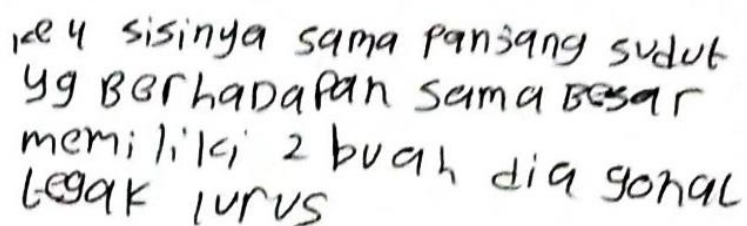 ke 4 sisinya sama panjang sudut
yg Berhadapan sama Besar
memiliki 2 buah diagonal
tegak lurus